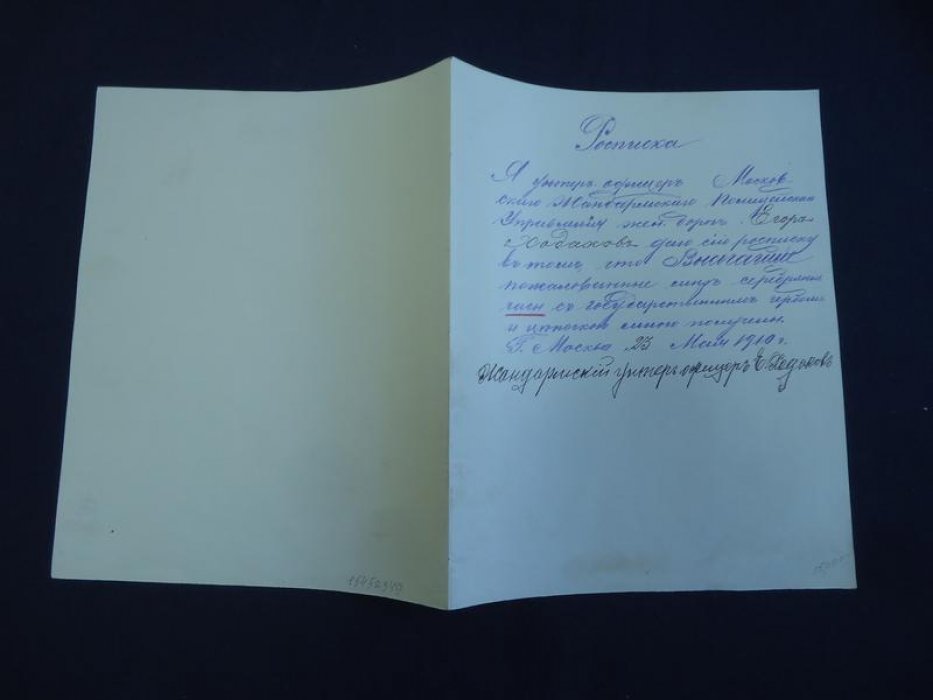 Росписка
Я унтеръ офицеръ Москов
скаго Жандармскаго Полицейскаго
Управленія жел. дорогъ Егоръ
Ходаковъ даю сію росписку
въ томъ, что ВЫСОЧАЙШЕ
пожалованные ему серебряные
часы съ государственнымъ гербомъ
и цѣпочкой мною получены.
Г. Москва 23 Мая 1910 г.
Жандармскій унтеръ офицеръ Е. Ходаковъ